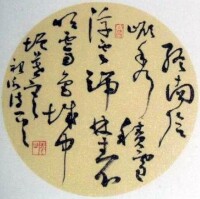 終南陰
嶺秀積雪
浮雲端林表
明霽色城中
增暮寒
祖詠詩